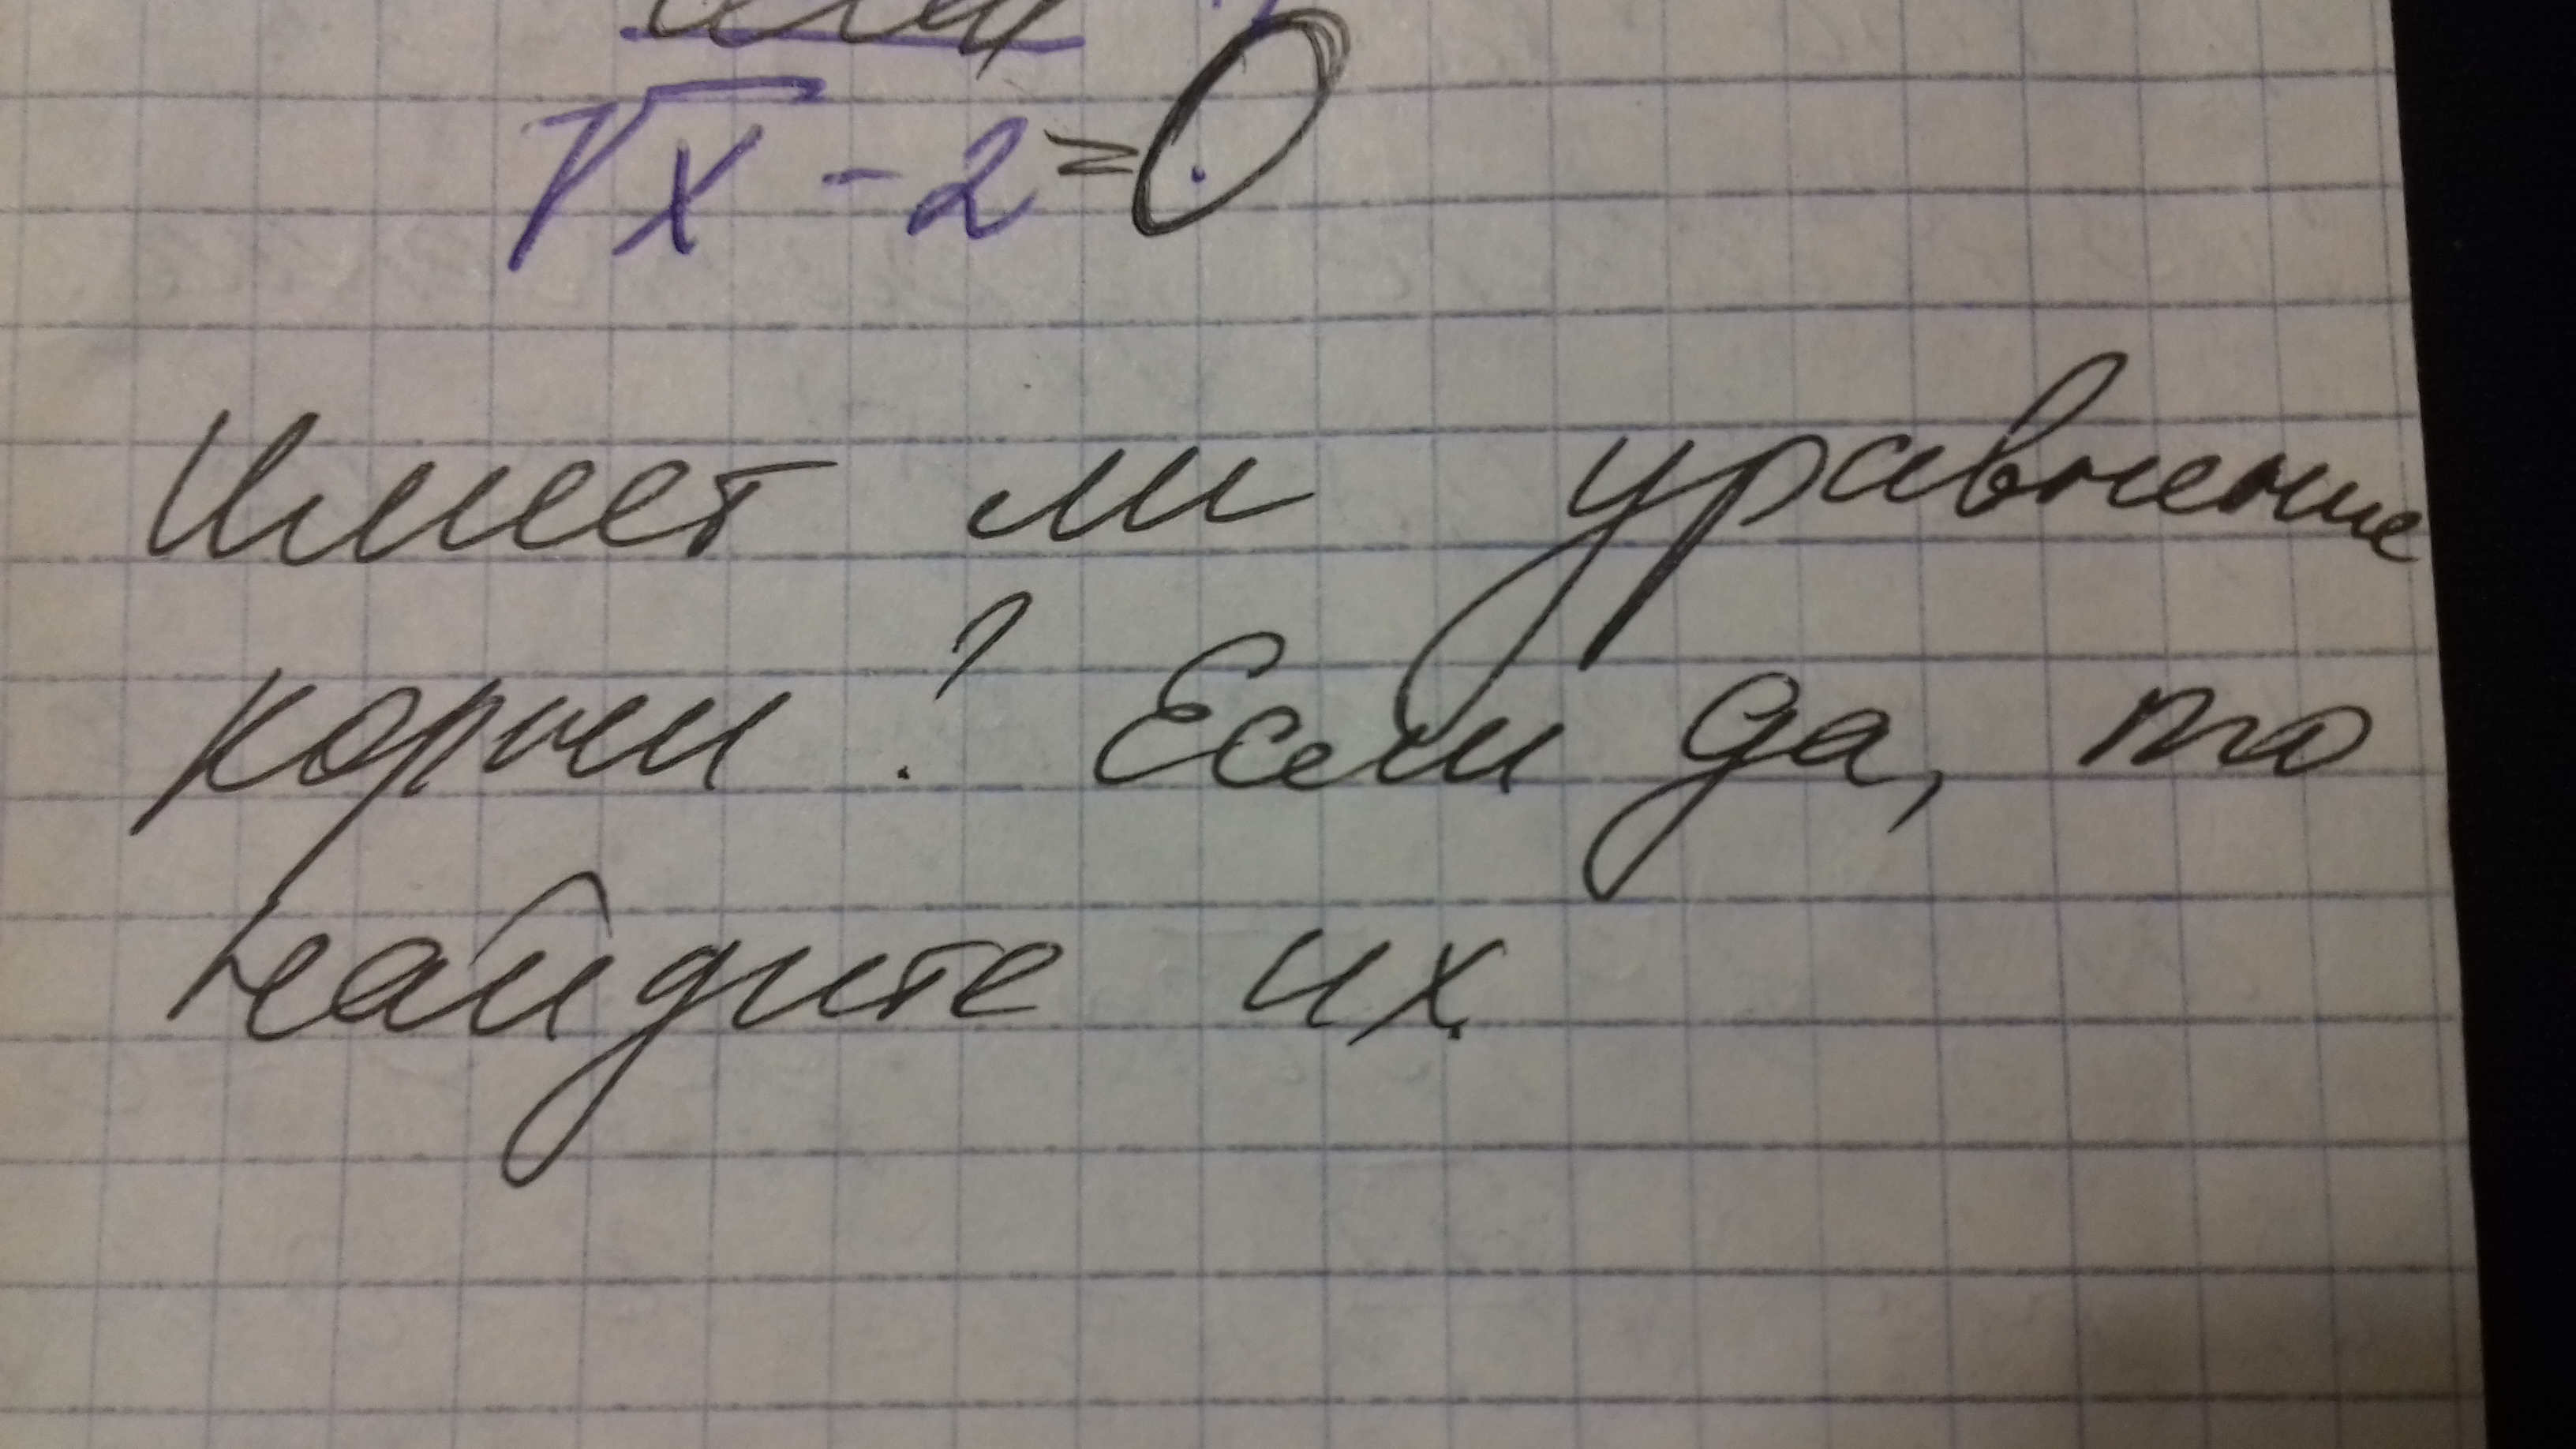 √x - 2 = 0
Имеет ли уравнение
корни? Если да, то
найдите их